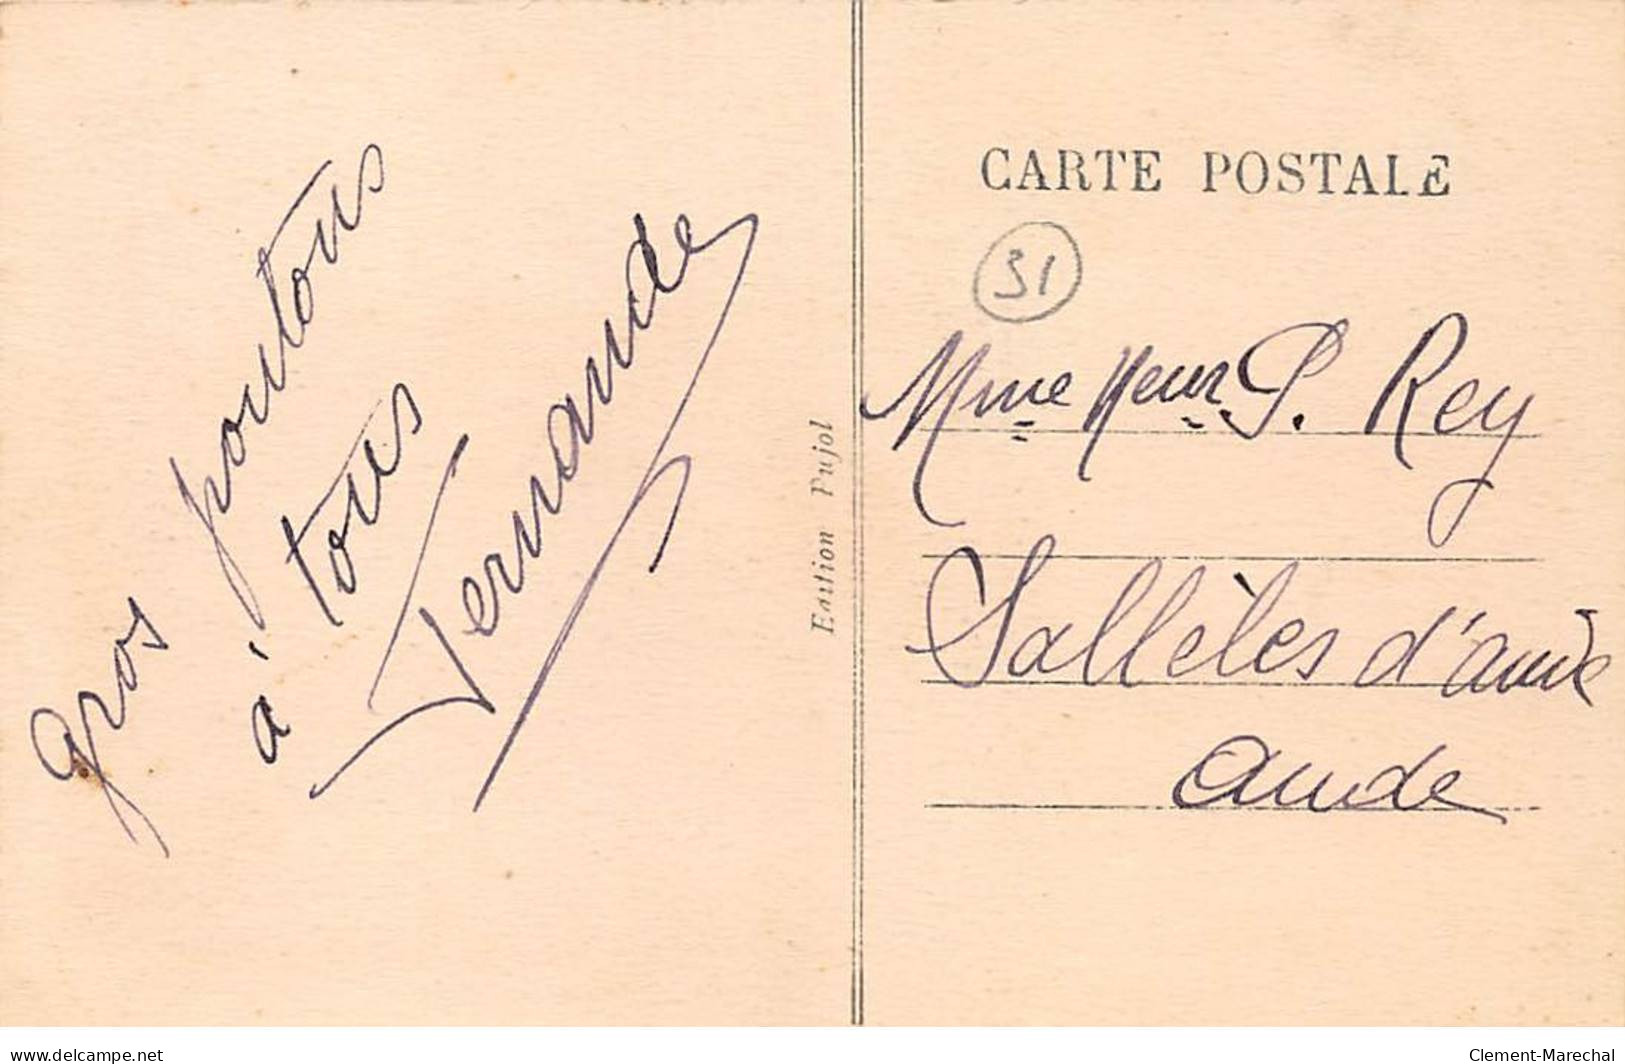 gros poutous
à tous
Fernande
Edition Pujol
CARTE POSTALE
31
Mme Veuve P. Rey
Sallèles d'aude
Aude
delcampe.net
Clement-Marechal